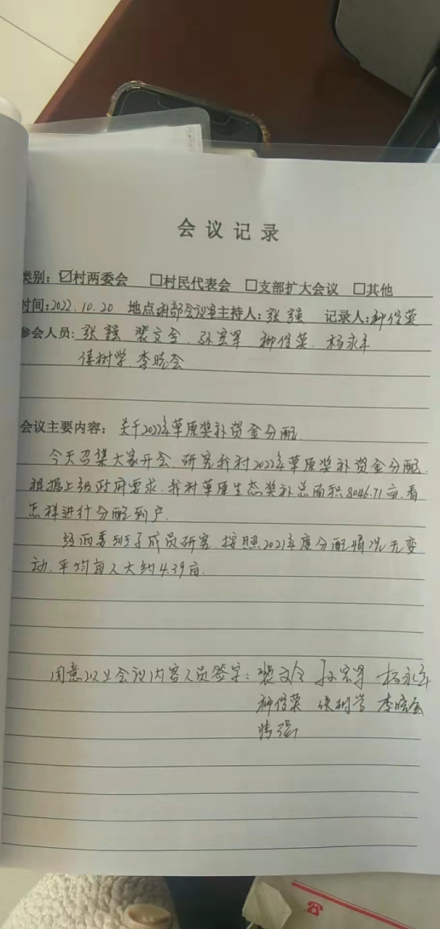 会议记录
类别：☑村两委会 □村民代表会 □支部扩大会议 □其他
时间：2022.10.20 地点：村部会议室主持人：张强 记录人：柳俊荣
参会人员：张强 裴文全 孙宏军 柳俊荣 杨永年
侯树学 李晓会
会议主要内容：关于2022年草原奖补资金分配
今天召集大家开会，研究我村2022年草原奖补资金分配
根据上级政府要求，我村草原生态奖补总面积8046.71亩，看
怎样进行分配到户
经两委班子成员研究，按照2021年度分配情况无变
动，平均每人大约4.39亩。
同意以上会议内容人员签字：裴文全 孙宏军 杨永年
柳俊荣 侯树学 李晓会
张强